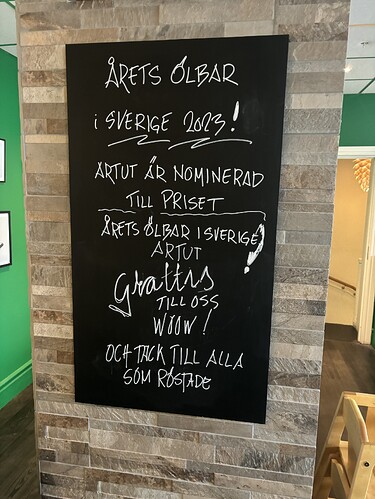 ÅRETS ÖLBAR
i SVERIGE 2023!
ÄRTUT ÄR NOMINERAD
TILL PRISET
ÅRETS ÖLBAR I SVERIGE!
ÄRTUT
Grattis
TILL OSS
WÖÖW!
OCH TACK TILL ALLA
SOM RÖSTADE